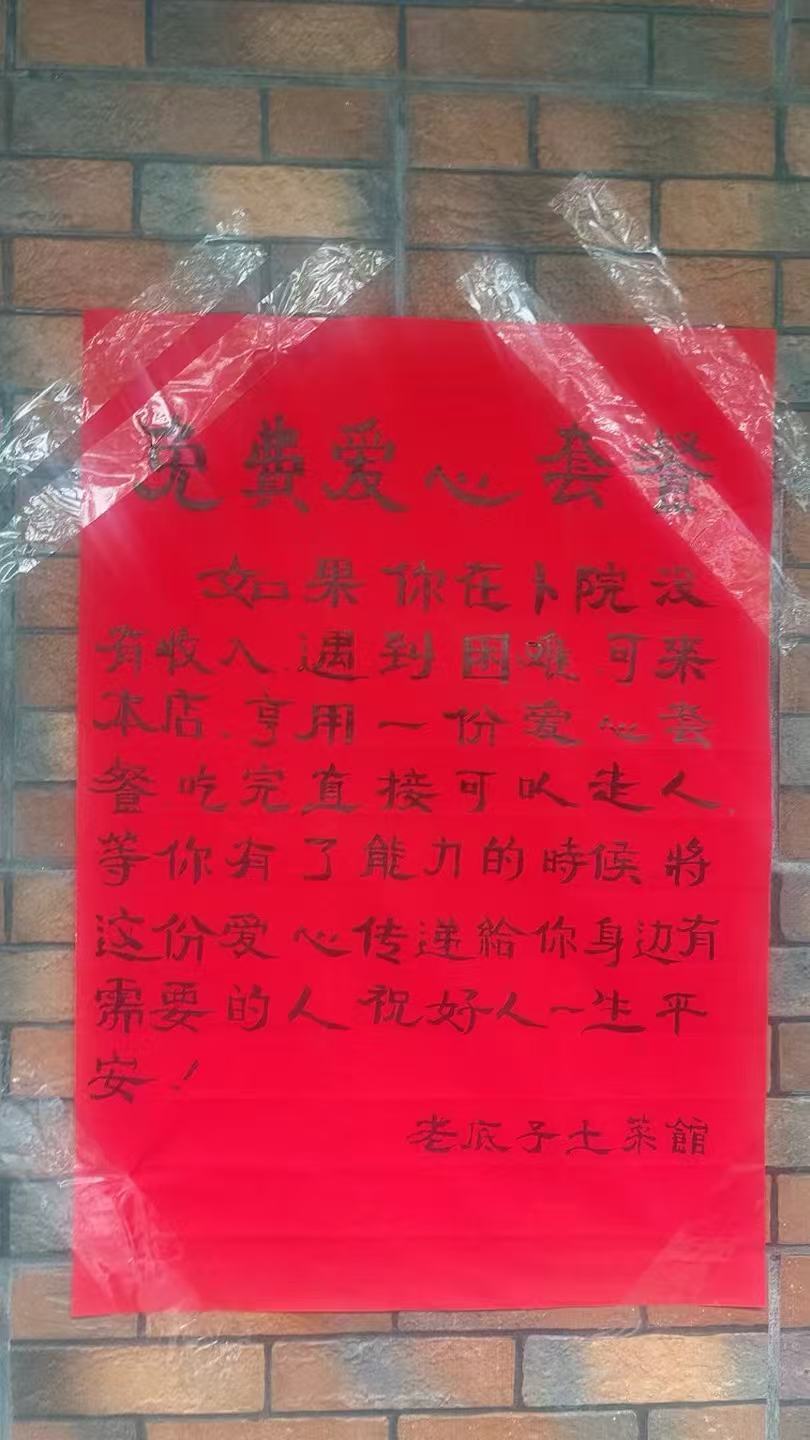 免費爱心套餐
如果你在卜院没
有收入遇到困难可来
本店.享用一份爱心套
餐吃完直接可以走人.
等你有了能力的時候將
这份爱心传递給你身边有
需要的人祝好人一生平
安！
老底子土菜館